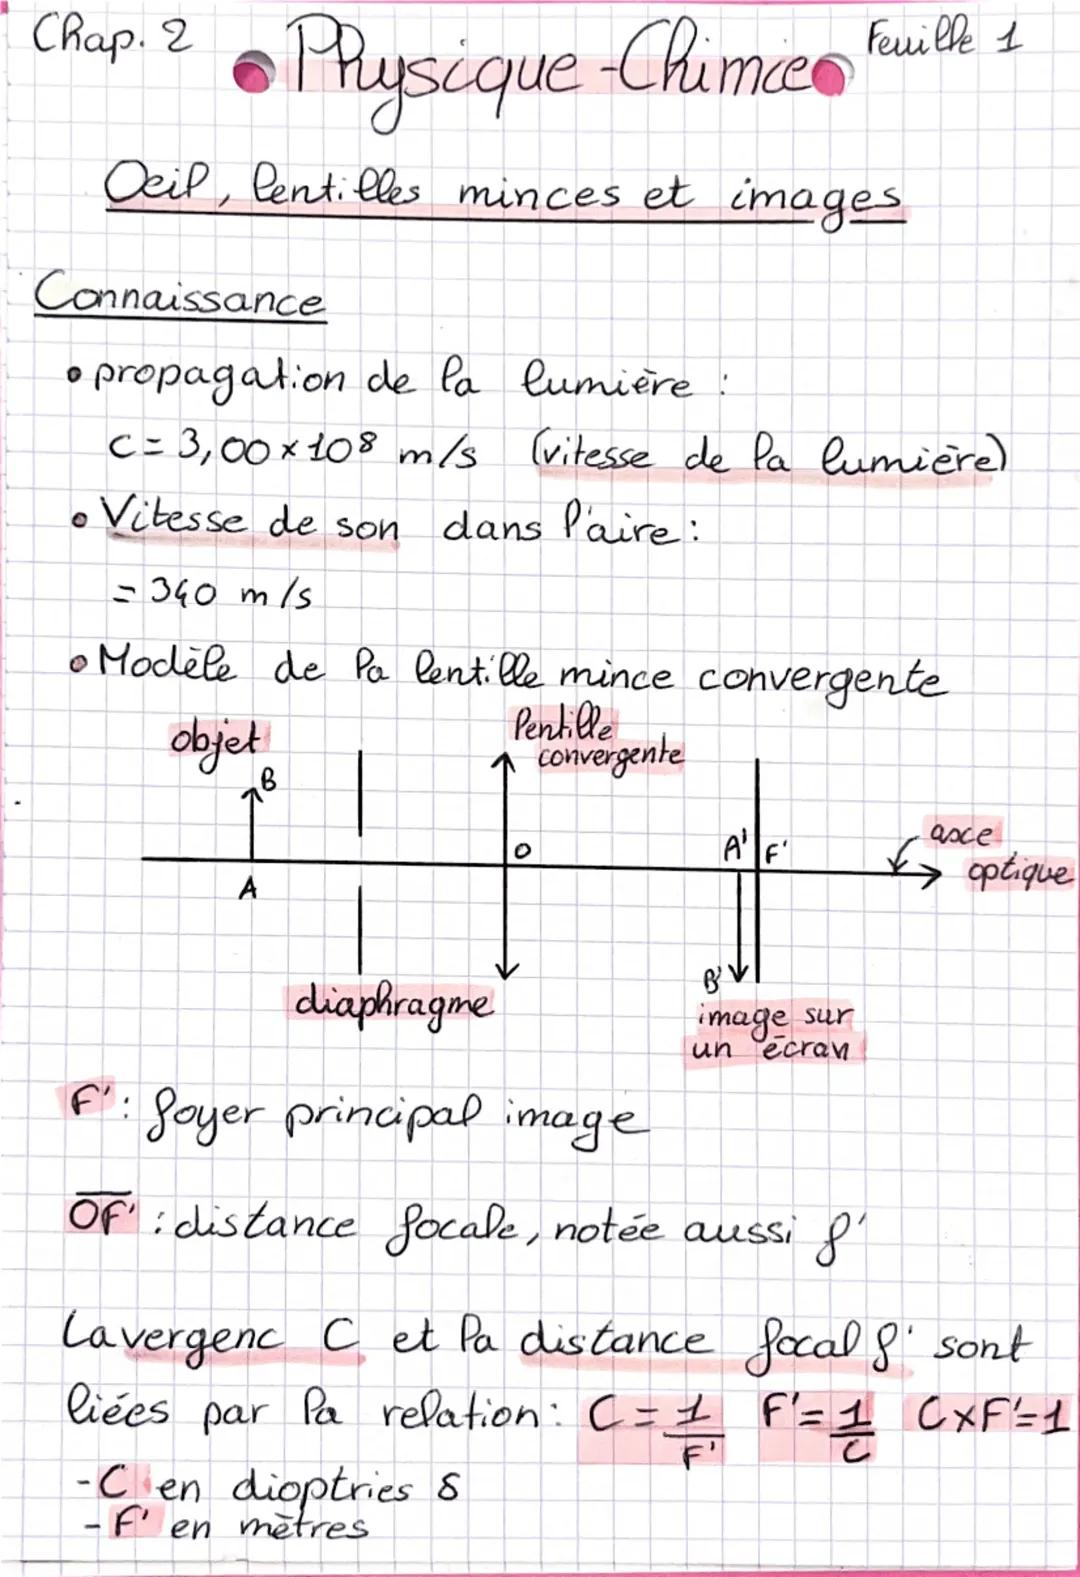 Chap. 2
Physique-Chimie
Feuille 1
Oeil, lentilles minces et images
Connaissance
• propagation de la lumière :
c = 3,00 × 10⁸ m/s (vitesse de la lumière)
• Vitesse de son dans l'aire :
= 340 m/s
• Modèle de la lentille mince convergente
objet
lentille
convergente
B
axe
optique
O
A' F'
A
diaphragme
B'
image sur
un écran
F' : foyer principal image
OF' : distance focale, notée aussi f'
La vergenc C et la distance focal f' sont
liées par la relation : C = 1/F' F' = 1/C C×F'=1
- C en dioptries δ
- F' en mètres